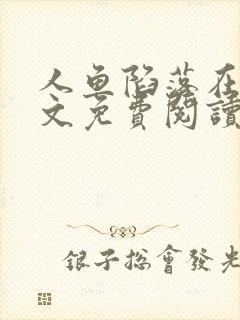 人魚陷落在
文免費閱讀
銀子總會發光